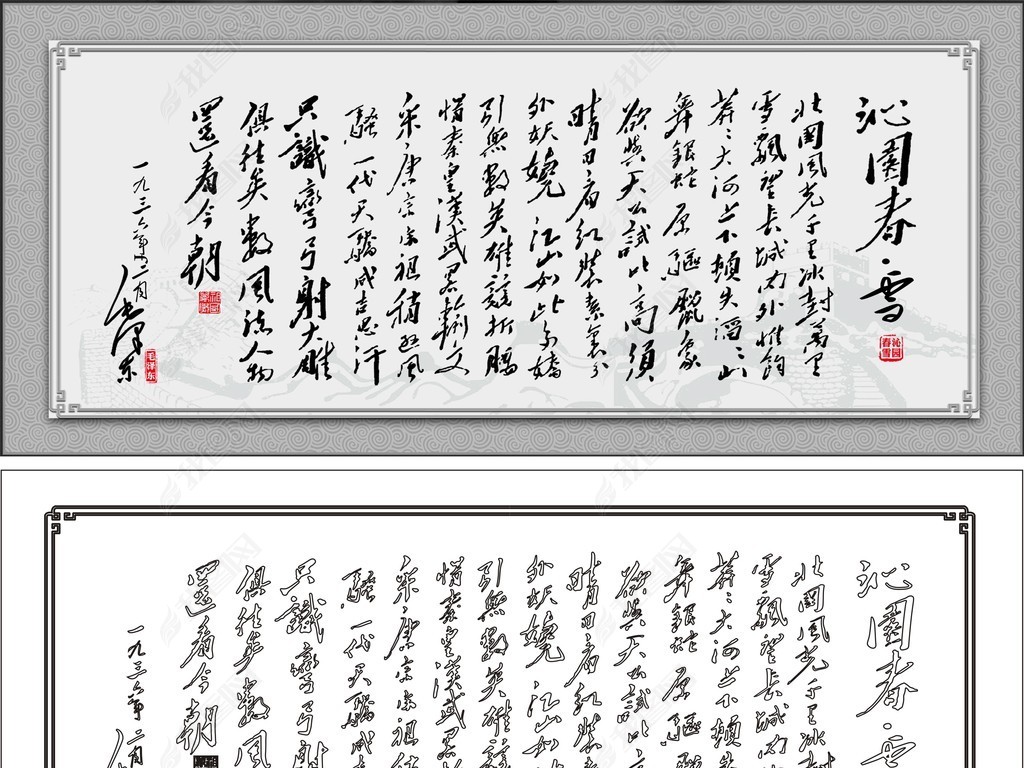 沁園春·雪
沁园
春雪
北國風光千里冰封萬里
雪飄望長城內外惟餘
莽〻大河上下頓失滔〻山
舞銀蛇原驅臘象
欲與天公試比高須
晴日看紅裝素裹分
外妖嬈江山如此多嬌
引無數英雄競折腰
惜秦皇漢武略輸文
采唐宗宋祖稍遜風
騷一代天驕成吉思汗
只識彎弓射大雕
俱往矣數風流人物
還看今朝
一九三六年十二月
毛澤東
毛泽东
沁園春·雪
北國風光千里冰封
雪飄望長城內外
莽〻大河上下頓
舞銀蛇原驅
欲與天公試比高
晴日看紅裝素
外妖嬈江山如
引無數英雄競
惜秦皇漢武略
采唐宗宋祖
騷一代天驕成
只識彎弓射
俱往矣數風
還看今朝
一九三六年十二月